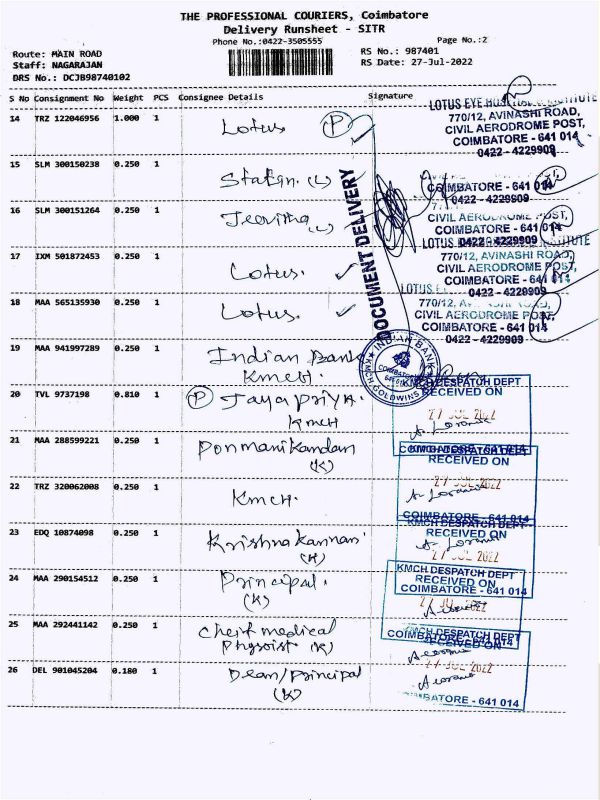 THE PROFESSIONAL COURIERS, Coimbatore
Delivery Runsheet - SITR
Phone No.:0422-3505555 Page No.:2
Route: MAIN ROAD RS No.: 987401
Staff: NAGARAJAN RS Date: 27-Jul-2022
DRS No.: DCJB98740102
S No Consignment No Weight PCS Consignee Details Signature
LOTUS EYE HOSPITAL INSTITUTE
14 TRZ 122046956 1.000 1 Lotus P
770/12, AVINASHI ROAD,
CIVIL AERODROME POST,
COIMBATORE - 641 014
0422 - 4229909
15 SLM 300150238 0.250 1 (L)
COIMBATORE - 641 014
0422 - 4229909
16 SLM 300151264 0.250 1 (L)
CIVIL AERODROME POST,
COIMBATORE - 641 014
0422 - 4229909
17 IXM 501872453 0.250 1 Lotus.
770/12, AVINASHI ROAD,
CIVIL AERODROME POST,
COIMBATORE - 641 014
0422 - 4229909
18 MAA 565135930 0.250 1 Lotus.
770/12,
CIVIL AERODROME POST,
COIMBATORE - 641 014
0422 - 4229909
DOCUMENT DELIVERY
19 MAA 941997289 0.250 1 Indian Bank
KMCH.
INDIAN BANK
COIMBATORE
KMCH GOLDWINS
20 TVL 9737198 0.810 1 P Jaya Priya.
KMCH
KMCH DESPATCH DEPT
RECEIVED ON
27 JUL 2022
21 MAA 288599221 0.250 1 Ponmanikandan
(K)
COIMBATORE - 641 014
RECEIVED ON
27 JUL 2022
22 TRZ 320062008 0.250 1 KMCH.
COIMBATORE - 641 014
KMCH DESPATCH DEPT
RECEIVED ON
23 EDQ 10874098 0.250 1 Krishnakannan
(K)
27 JUL 2022
KMCH DESPATCH DEPT
24 MAA 290154512 0.250 1 Principal.
(K)
RECEIVED ON
COIMBATORE - 641 014
27 JUL 2022
25 MAA 292441142 0.250 1 Cheif medical
Physist (K)
COIMBATORE - 641 014
RECEIVED ON
27 JUL 2022
26 DEL 901045204 0.180 1 Dean/Principal
(K)
COIMBATORE - 641 014